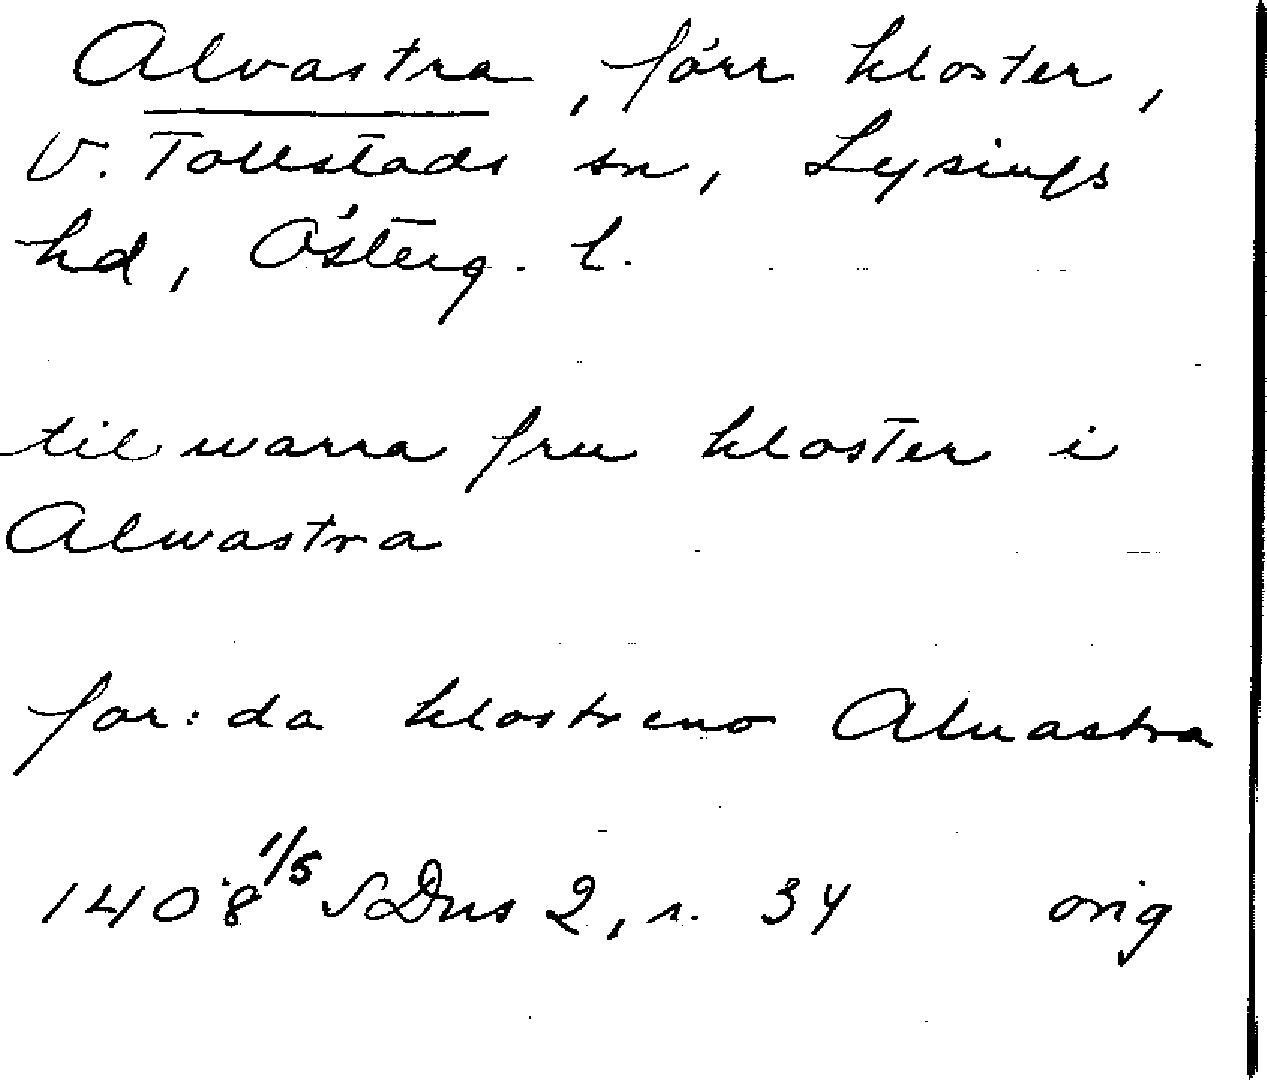 Alvastra, förr kloster,
V. Tollstads sn, Lysings
hd, Österg. l.
til warra fru kloster i
Alwastra
for:da klostreno Aluastra
1408 1/5 SDns 2, s. 34 orig